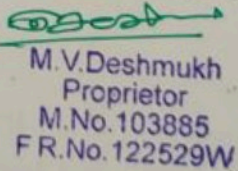 M.V.Deshmukh
Proprietor
M.No.103885
F R.No.122529W